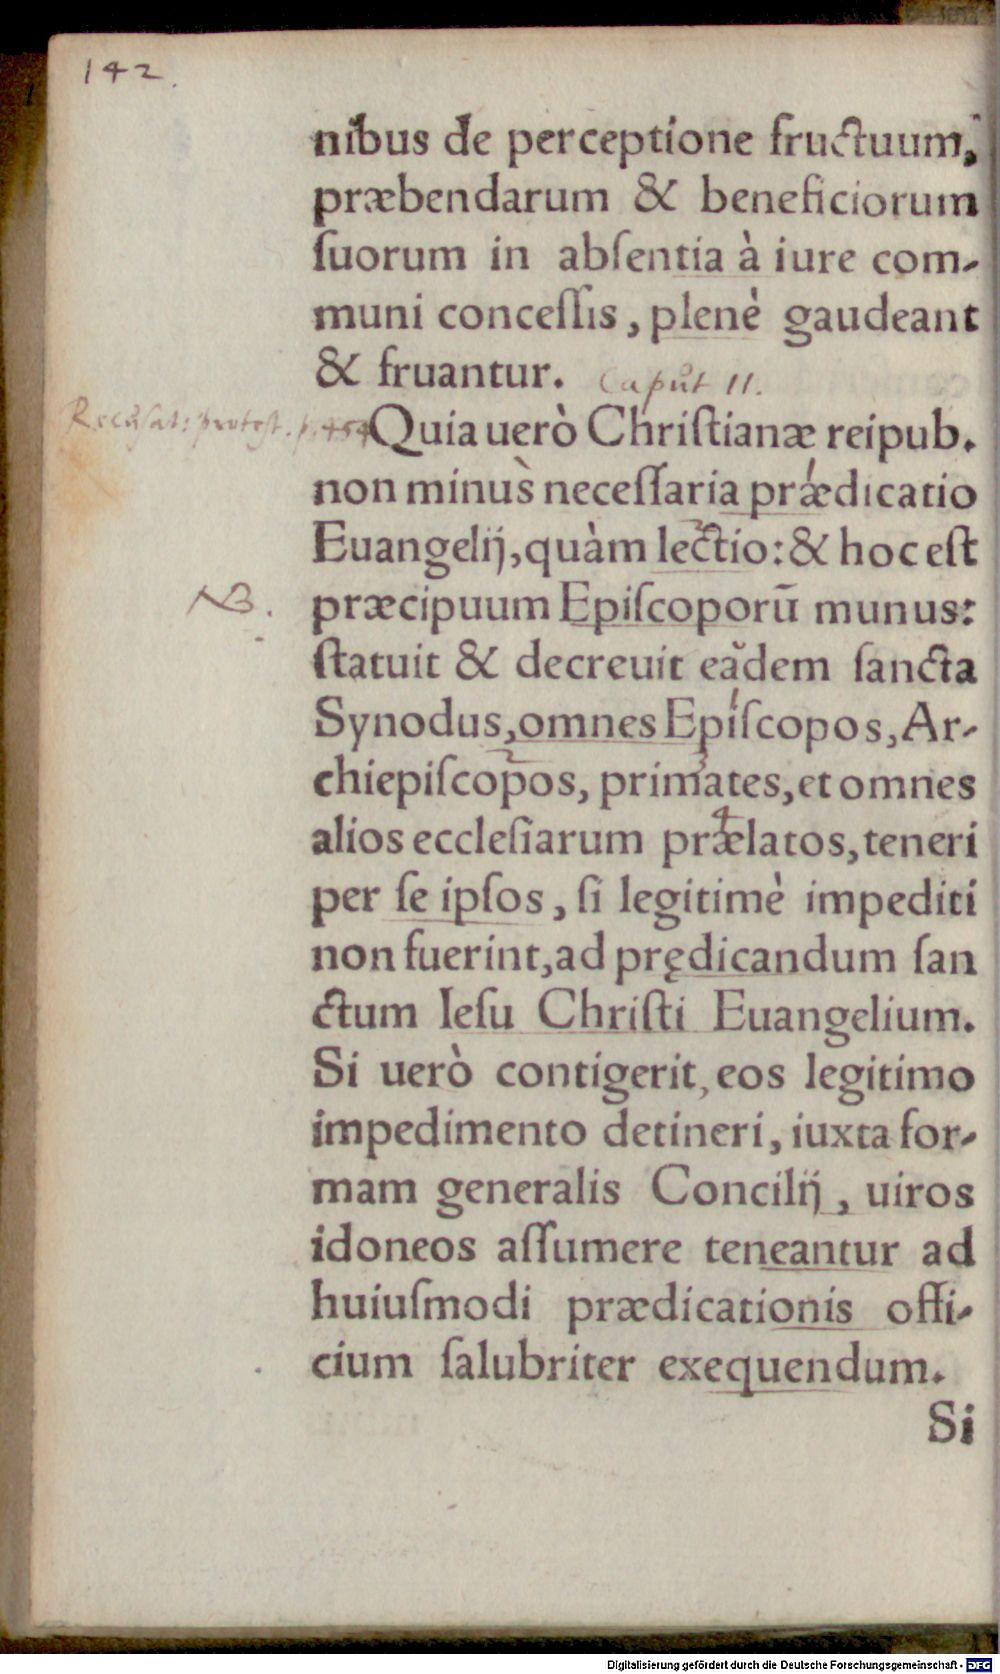 142.
nibus de perceptione fructuum,
præbendarum & beneficiorum
ſuorum in abſentia à iure com-
muni conceſſis, plenè gaudeant
& fruantur. Caput II.
Recusat: protest. p. 454
Quia uerò Chriſtianæ reipub.
non minus neceſſaria prædicatio
Euangelij, quàm lectio: & hoc eſt
NB.
præcipuum Epiſcoporū munus:
ſtatuit & decreuit eadem ſancta
Synodus, omnes Epiſcopos, Ar-
chiepiſcopos, primates, et omnes
alios eccleſiarum prælatos, teneri
per ſe ipſos, ſi legitimè impediti
non fuerint, ad prędicandum ſan
ctum Ieſu Chriſti Euangelium.
Si uerò contigerit, eos legitimo
impedimento detineri, iuxta for-
mam generalis Concilij, uiros
idoneos aſſumere teneantur ad
huiuſmodi prædicationis offi-
cium ſalubriter exequendum.
Si
Digitalisierung gefördert durch die Deutsche Forschungsgemeinschaft - DFG